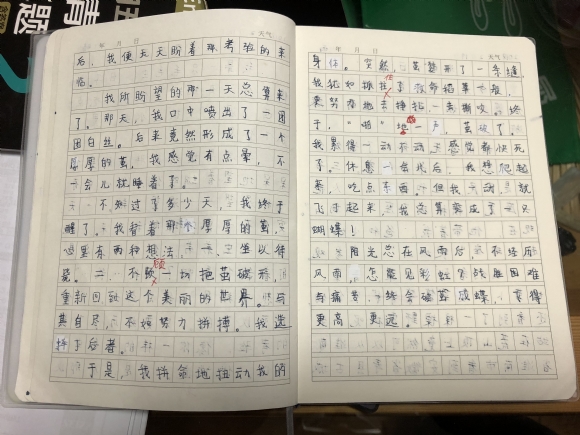 后，我便天天盼着那考验的来
临。
我所盼望的那一天总算来
了。那天，我口中喷出了一团
团白丝。后来竟然形成了一个
厚厚的茧，我感觉有点晕，不
一会儿就睡着了。
不知过了多少天，我终于
醒了，我背着那个厚厚的茧，
心里有两种想法，一、坐以待
毙。二、不顾一切把茧破形，
重新回到这个美丽的世界。与
其自尽，不如努力拼搏。我选
择了后者。
于是，我拼命地扭动我的
身体。突然，茧裂开了一条缝，
我犹如抓住了救命稻草一般，
更努力地去挣扎、去撕咬。终
于，"啪"地一声，茧破了，
我累得一动不动，感觉都快死
了。休息一会儿后，我想爬起
来，吃点东西。但我一动，就
飞了起来，我总算变成了一只
蝴蝶！
阳光总在风雨后，不经历
风雨，怎能见彩虹？战胜困难
与痛苦，终会破茧成蝶，飞得
更高、更远。